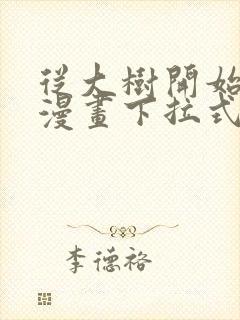 從大樹開始
漫畫下拉式
李德裕